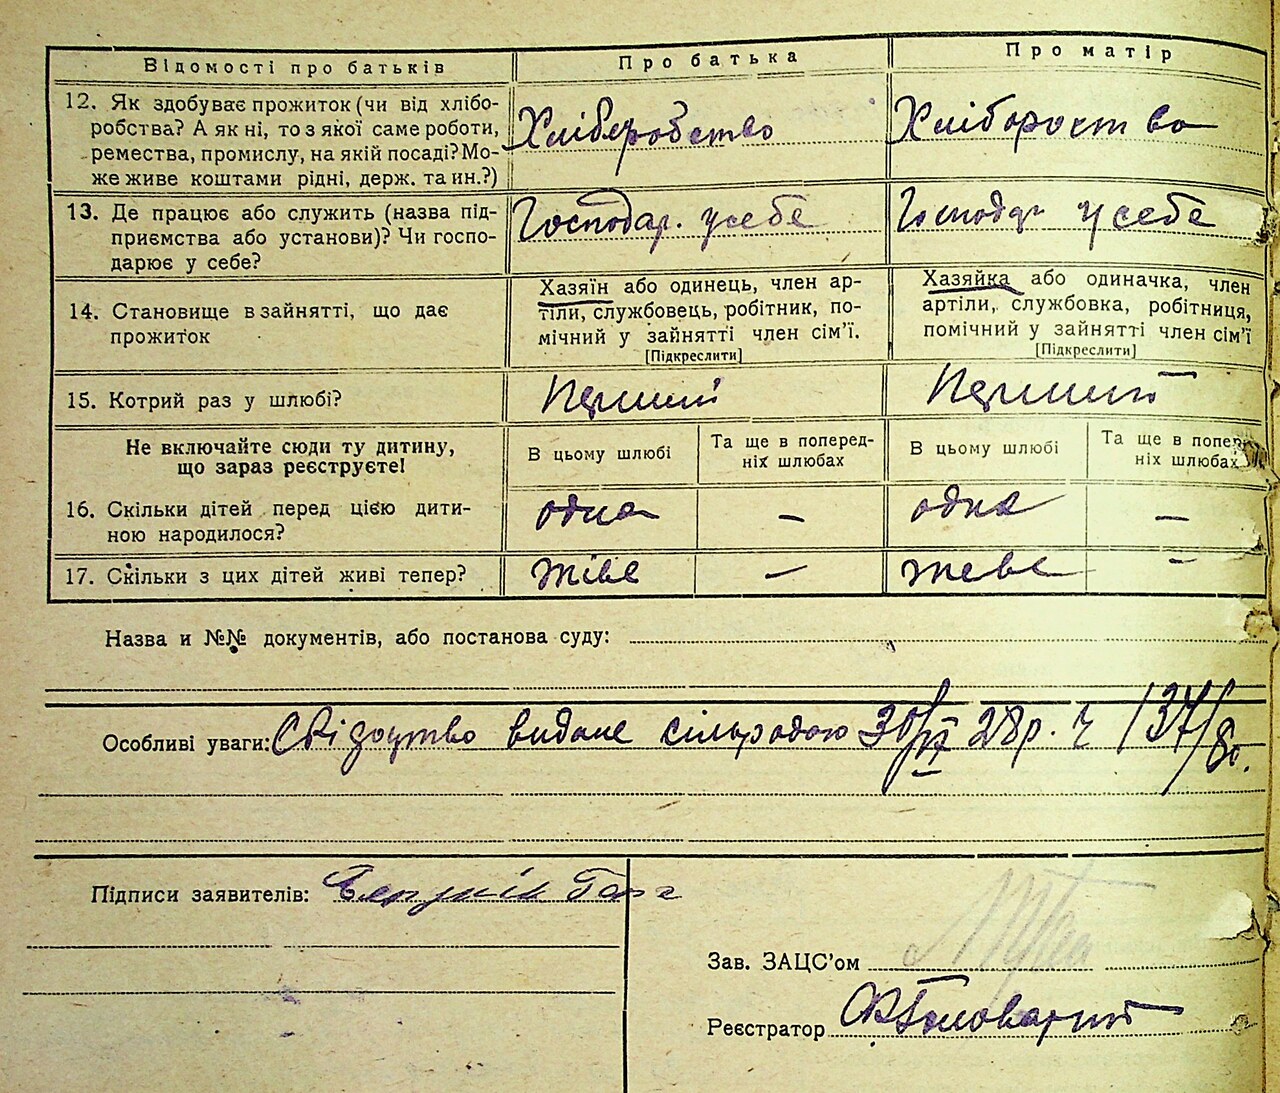 Відомості про батьків
Про батька
Про матір
12. Як здобуває прожиток (чи від хлібо-
робства? А як ні, то з якої саме роботи,
ремества, промислу, на якій посаді? Мо-
же живе коштами рідні, держ. та ин.?)
Хліборобство
Хліборост во
13. Де працює або служить (назва під-
приємства або установи)? Чи госпо-
дарює у себе?
Господар. у себе
Господр у себе
14. Становище в зайнятті, що дає
прожиток
Хазяїн або одинець, член ар-
тіли, службовець, робітник, по-
мічний у зайнятті член сім'ї.
[Підкреслити]
Хазяйка або одиначка, член
артіли, службовка, робітниця,
помічний у зайнятті член сім'ї
[Підкреслити]
15. Котрий раз у шлюбі?
Перший
Перший
Не включайте сюди ту дитину,
що зараз реєструєте!
В цьому шлюбі
Та ще в поперед-
ніх шлюбах
В цьому шлюбі
Та ще в попер
ніх шлюбах
16. Скільки дітей перед цією дити-
ною народилося?
одна
–
одна
–
17. Скільки з цих дітей живі тепер?
живе
–
живе
–
Назва и №№ документів, або постанова суду:
Особливі уваги: Свідоцтво видане сільрадою 30/VI 28 р. ч 137/
Підписи заявителів:
Зав. ЗАЦС'ом
Реєстратор